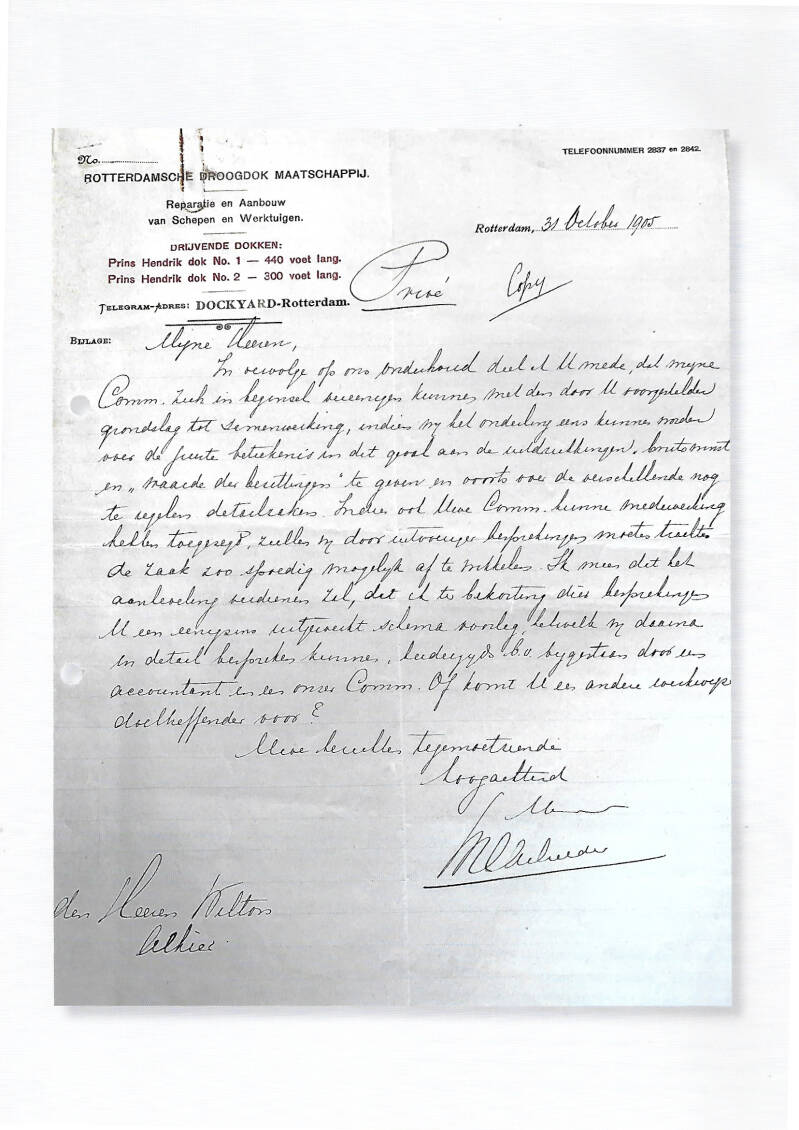 No.
TELEFOONNUMMER 2837 en 2842.
ROTTERDAMSCHE DROOGDOK MAATSCHAPPIJ.
Reparatie en Aanbouw
van Schepen en Werktuigen.
Rotterdam, 31 October 1905
DRIJVENDE DOKKEN:
Prins Hendrik dok No. 1 — 440 voet lang.
Prins Hendrik dok No. 2 — 300 voet lang.
Privé
Copy
TELEGRAM-ADRES: DOCKYARD-Rotterdam.
BIJLAGE:
Mijne Heeren,
In vervolge op ons onderhoud deel ik U mede, dat mijne
Comm. zich in beginsel vereenigen kunnen met den door U voorgestelden
grondslag tot samenwerking, indien wij het onderling eens kunnen worden
over de juiste beteekenis in dit geval aan de uitdrukkingen „brutowinst
en „waarde der bezittingen" te geven en voorts over de verschillende nog
te regelen detailzaken. Indien ook Uwe Comm. hunne medewerking
hebben toegezegd, zullen wij door uitvoeriger besprekingen moeten trachten
de zaak zoo spoedig mogelijk af te wikkelen. Ik meen dat het
aanbeveling verdienen zal, dat ik te bekorting dier besprekingen
U een eenigszins uitgewerkt schema voorleg, hetwelk wij daarna
in detail bespreken kunnen, beiderzijds b.v. bijgestaan door een
accountant en een onzer Comm. Of komt U een andere werkwijze
doeltreffender voor?
Uwe berichten tegemoetziende
hoogachtend
den Heeren Wilton
Alhier.